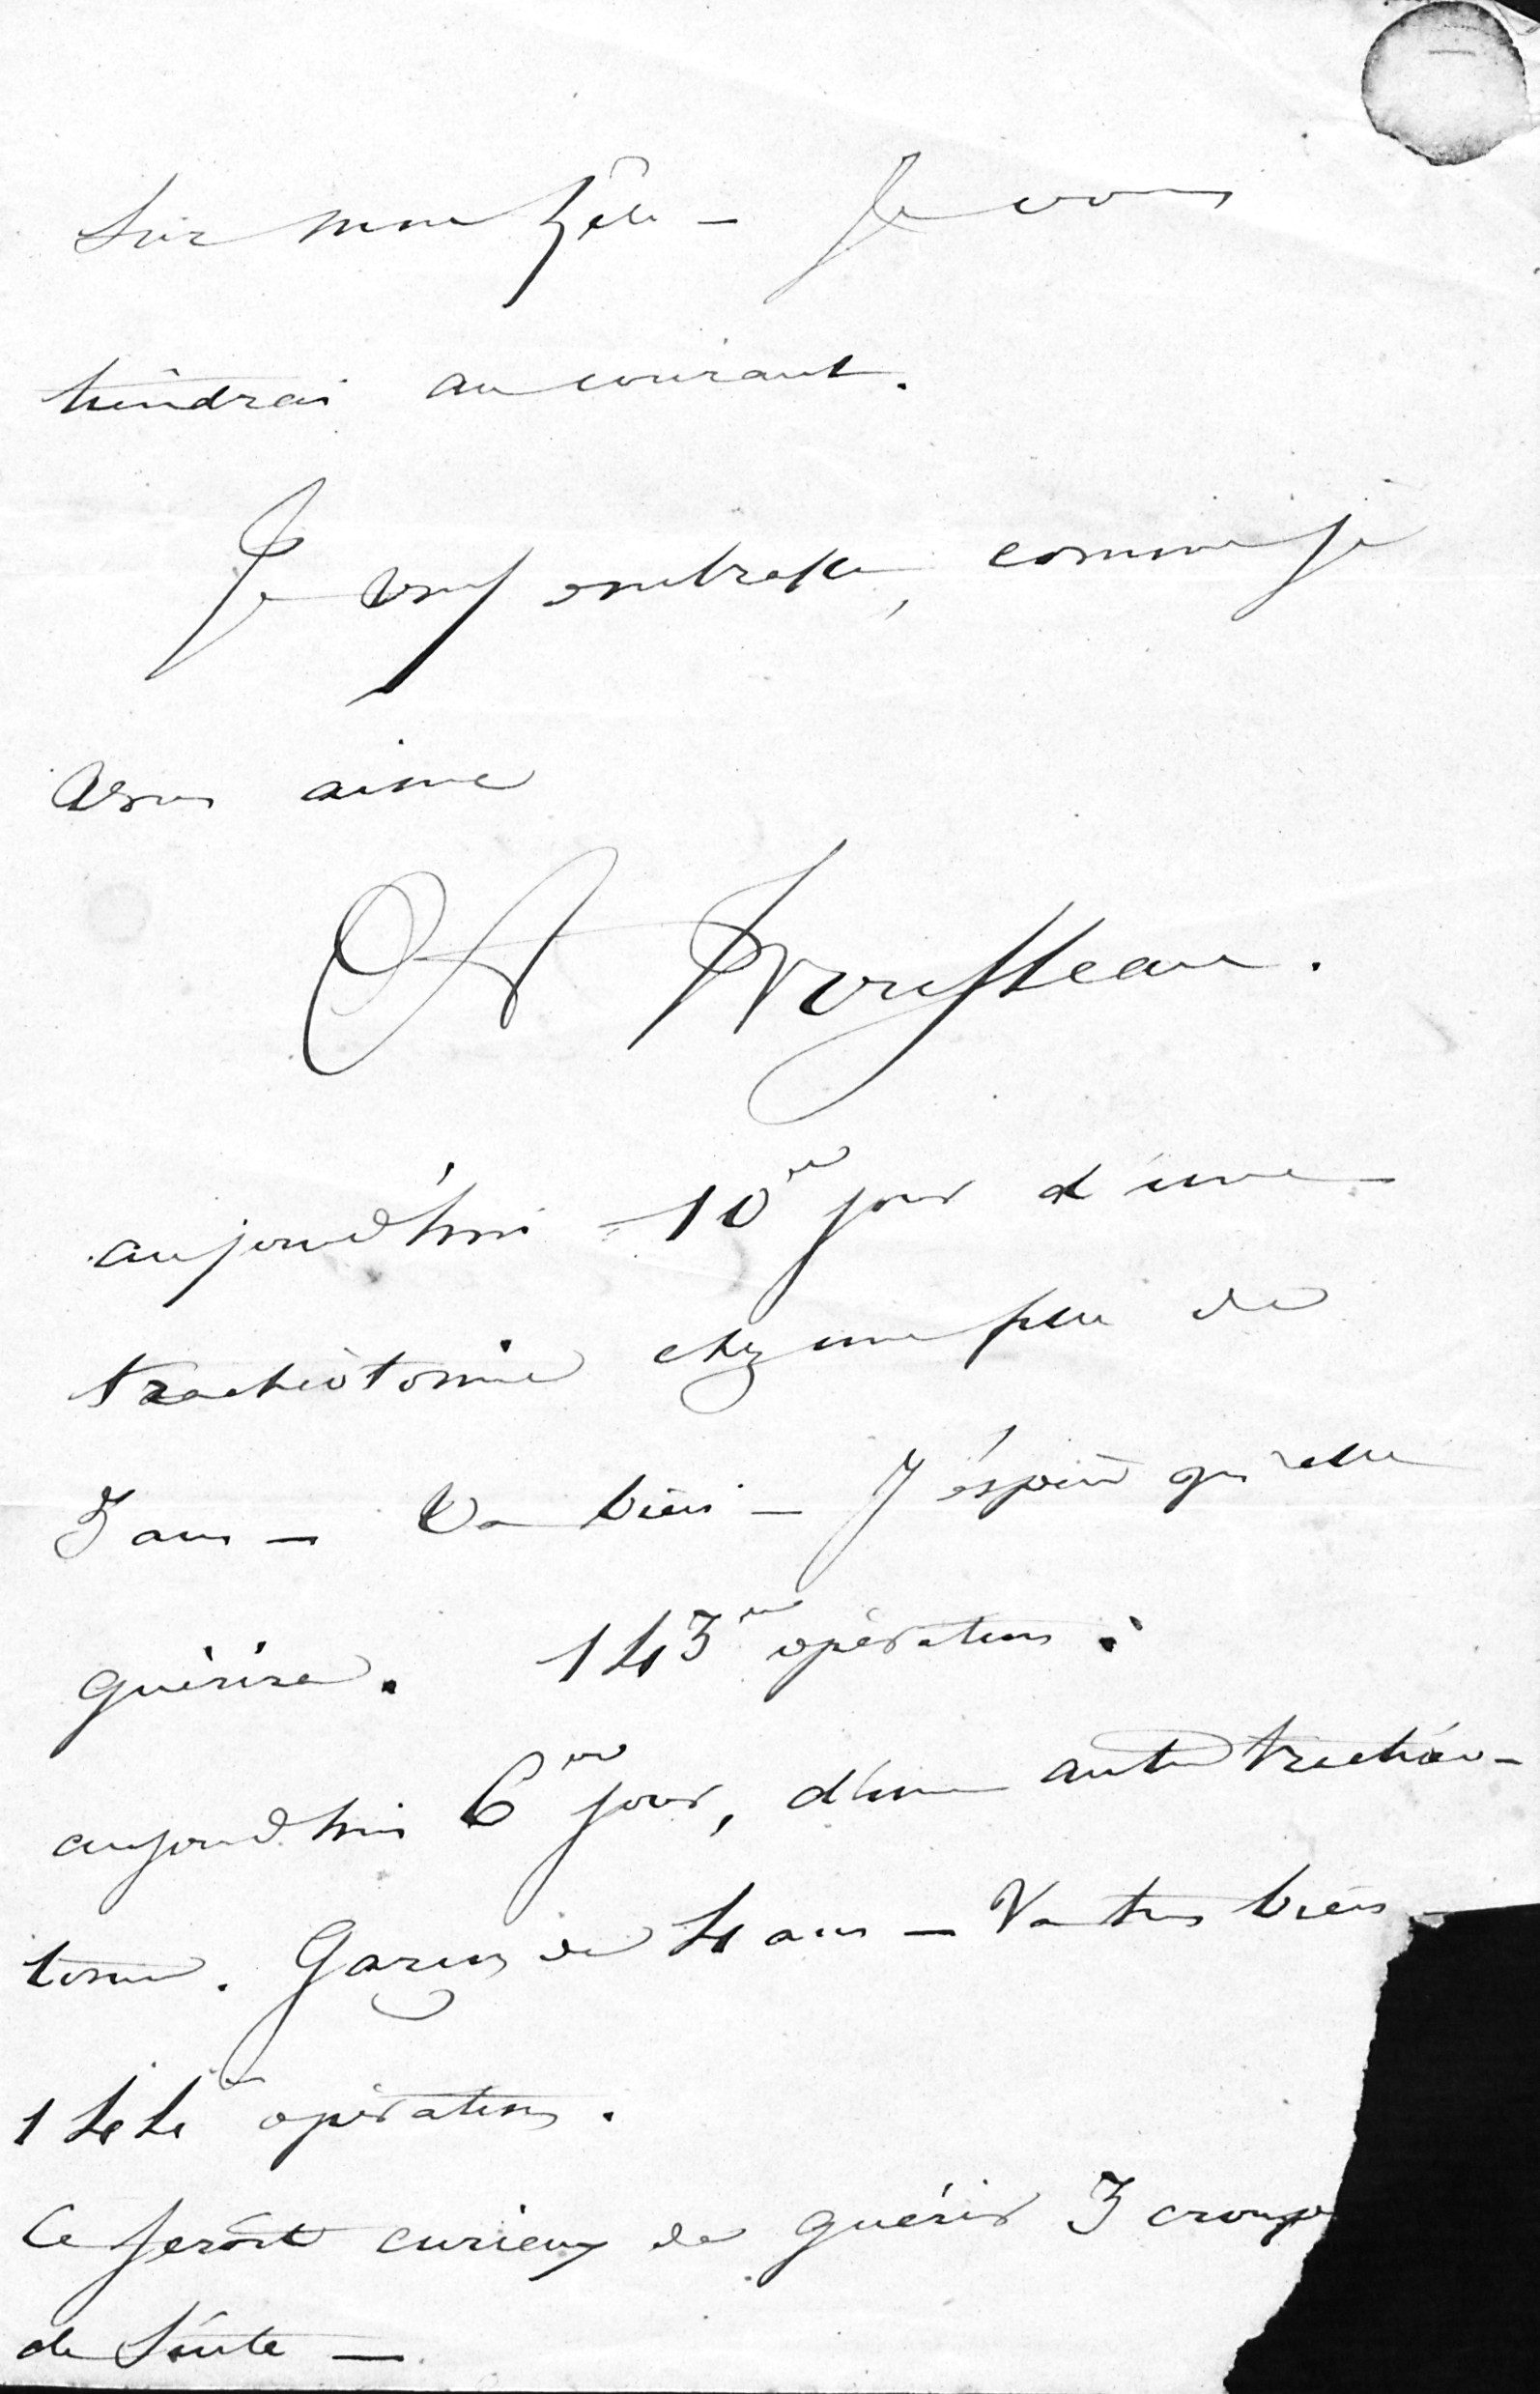 sur mon zèle – Je vous
tiendrai au courant.
Je vous embrasse, comme je
vous aime
A Trousseau.
aujourd'hui 10me jour d'une
trachéotomie chez une fille de
3 ans – Va bien – J'éspère qu'elle
guérira. 143me opération.
aujourd'hui 6me jour, d'une autre trachéo-
tomie. Garçon de 4 ans – Va très bien –
144me opération.
Ce serait curieux de guérir 3 croups
de suite –